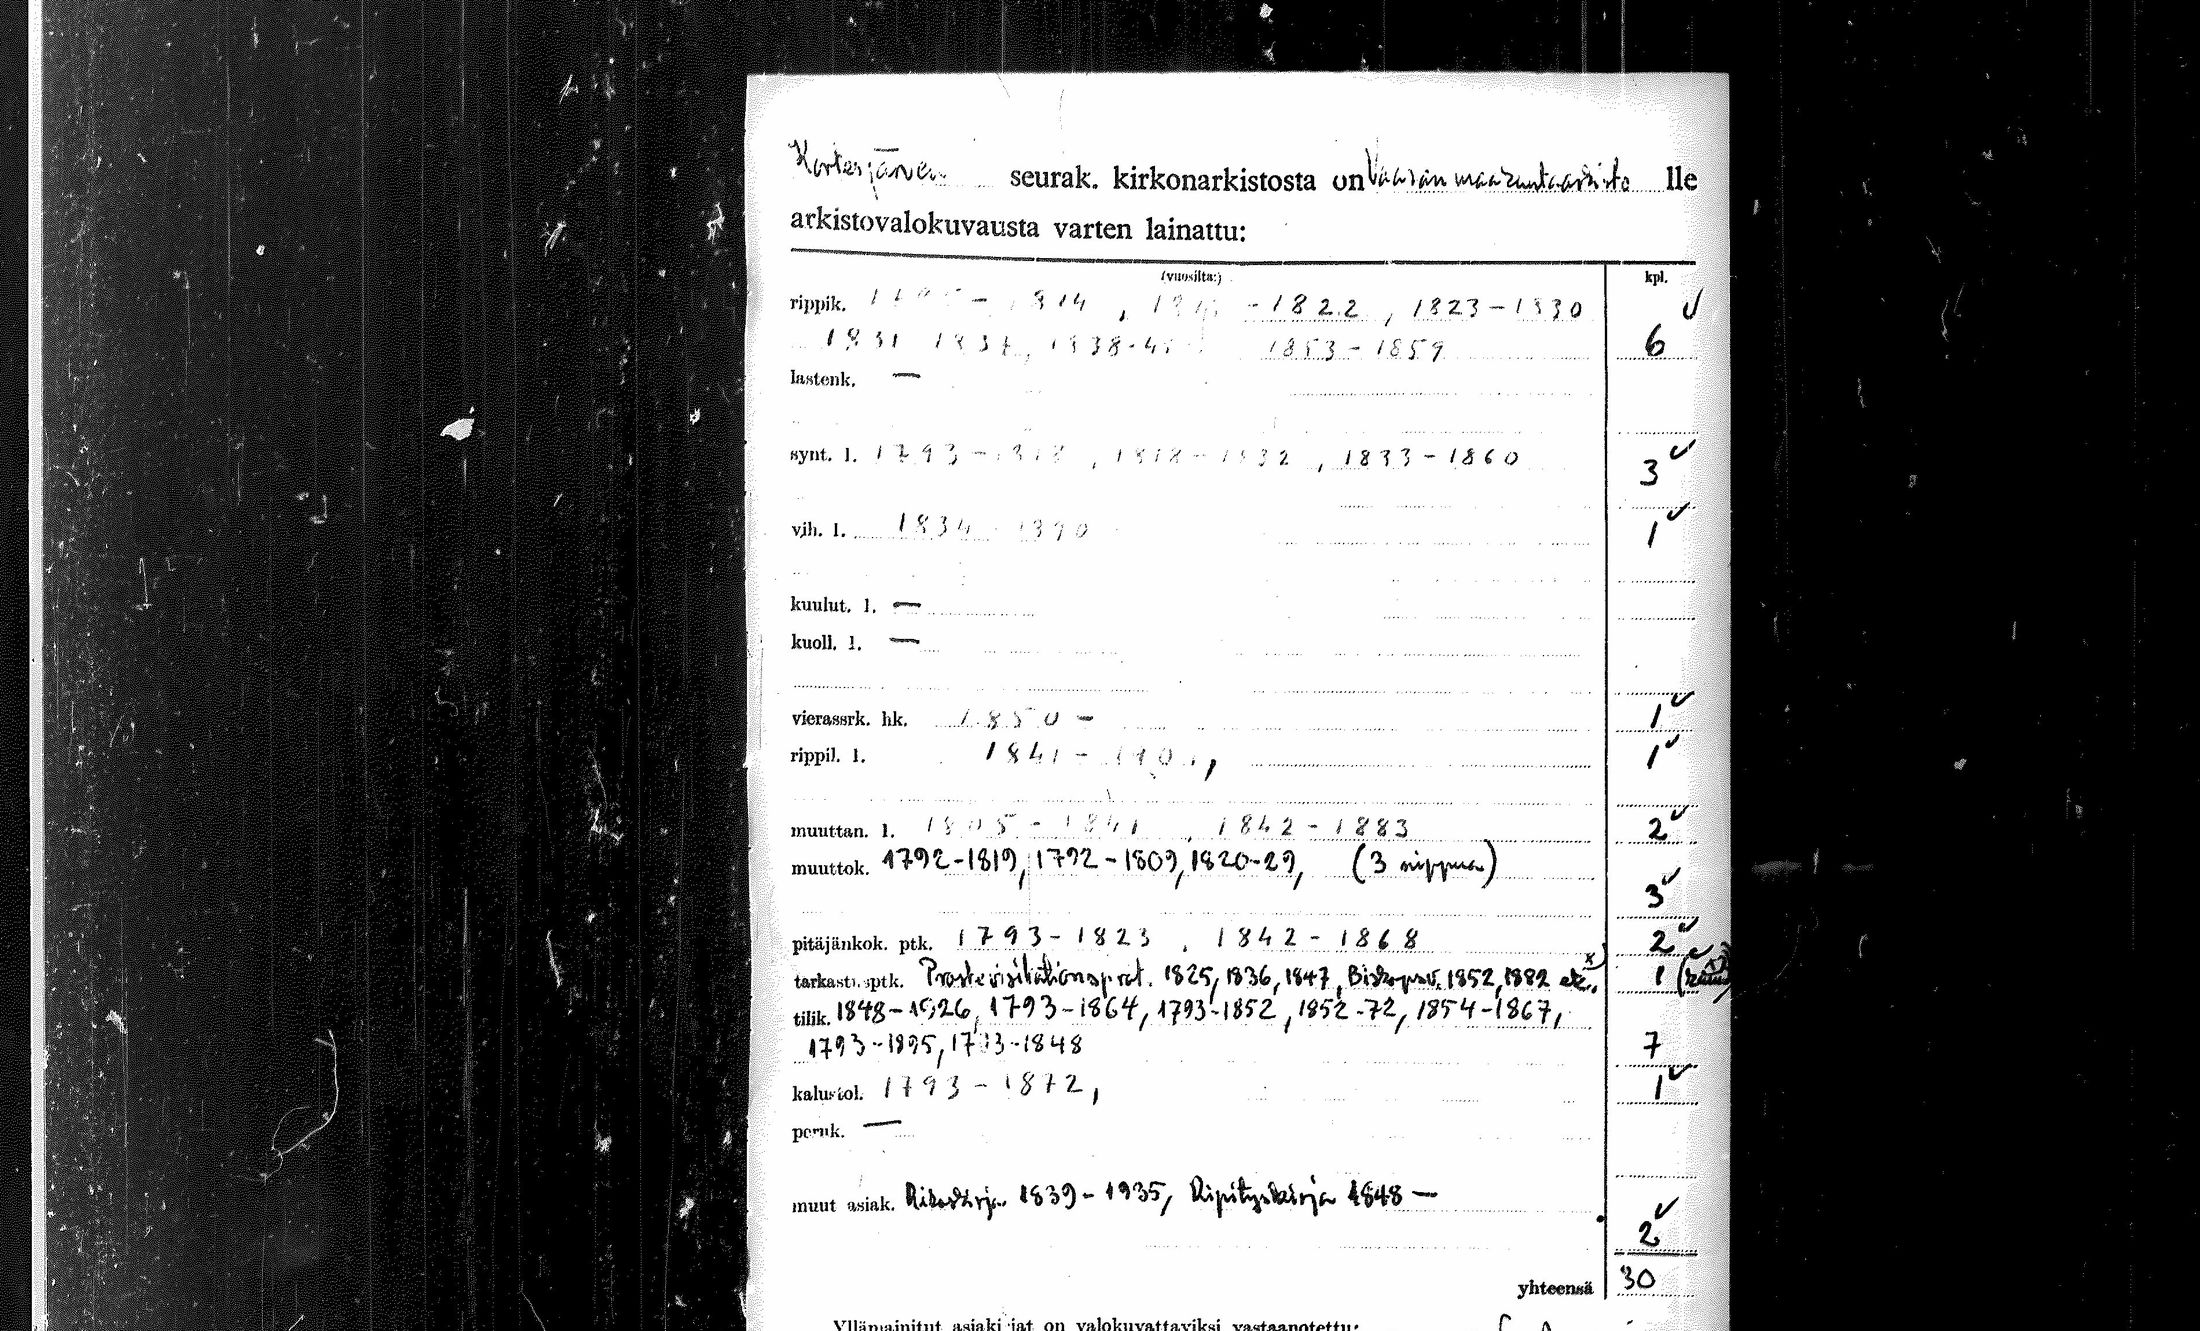 Kortesjärven seurak. kirkonarkistosta on Vaasan maakuntaarkisto lle
arkistovalokuvausta varten lainattu:
(vuosilta:) kpl.
rippik. 1814, -1822, 1823-1830
1831 1837, 1838-45 1853-1859 6
lastenk. —
synt. l. 1793-1818, 1818-1832, 1833-1860 3
vih. l. 1834 1890 1
kuulut. l. —
kuoll. l. —
vierassrk. hk. 1850 - 1
rippil. l. 1841 - 1
muuttan. l. 1805-1841, 1842-1883 2
muuttok. 1792-1819, 1792-1809, 1820-29, (3 nippua)
3
pitäjänkok. ptk. 1793-1823, 1842-1868 2
tarkast. ptk. Prostvisitationsprot. 1825, 1836, 1847, 1852, 1882 1
tilik. 1848-1926, 1793-1864, 1793-1852, 1852-72, 1854-1867,
1793-1895, 1793-1848 7
kalustol. 1793-1872, 1
peruk. —
muut asiak. Rikoskirja 1839-1935, Ripityskirja 1848 —
2
yhteensä 30
Yllämainitut asiakirjat on valokuvattaviksi vastaanotettu: